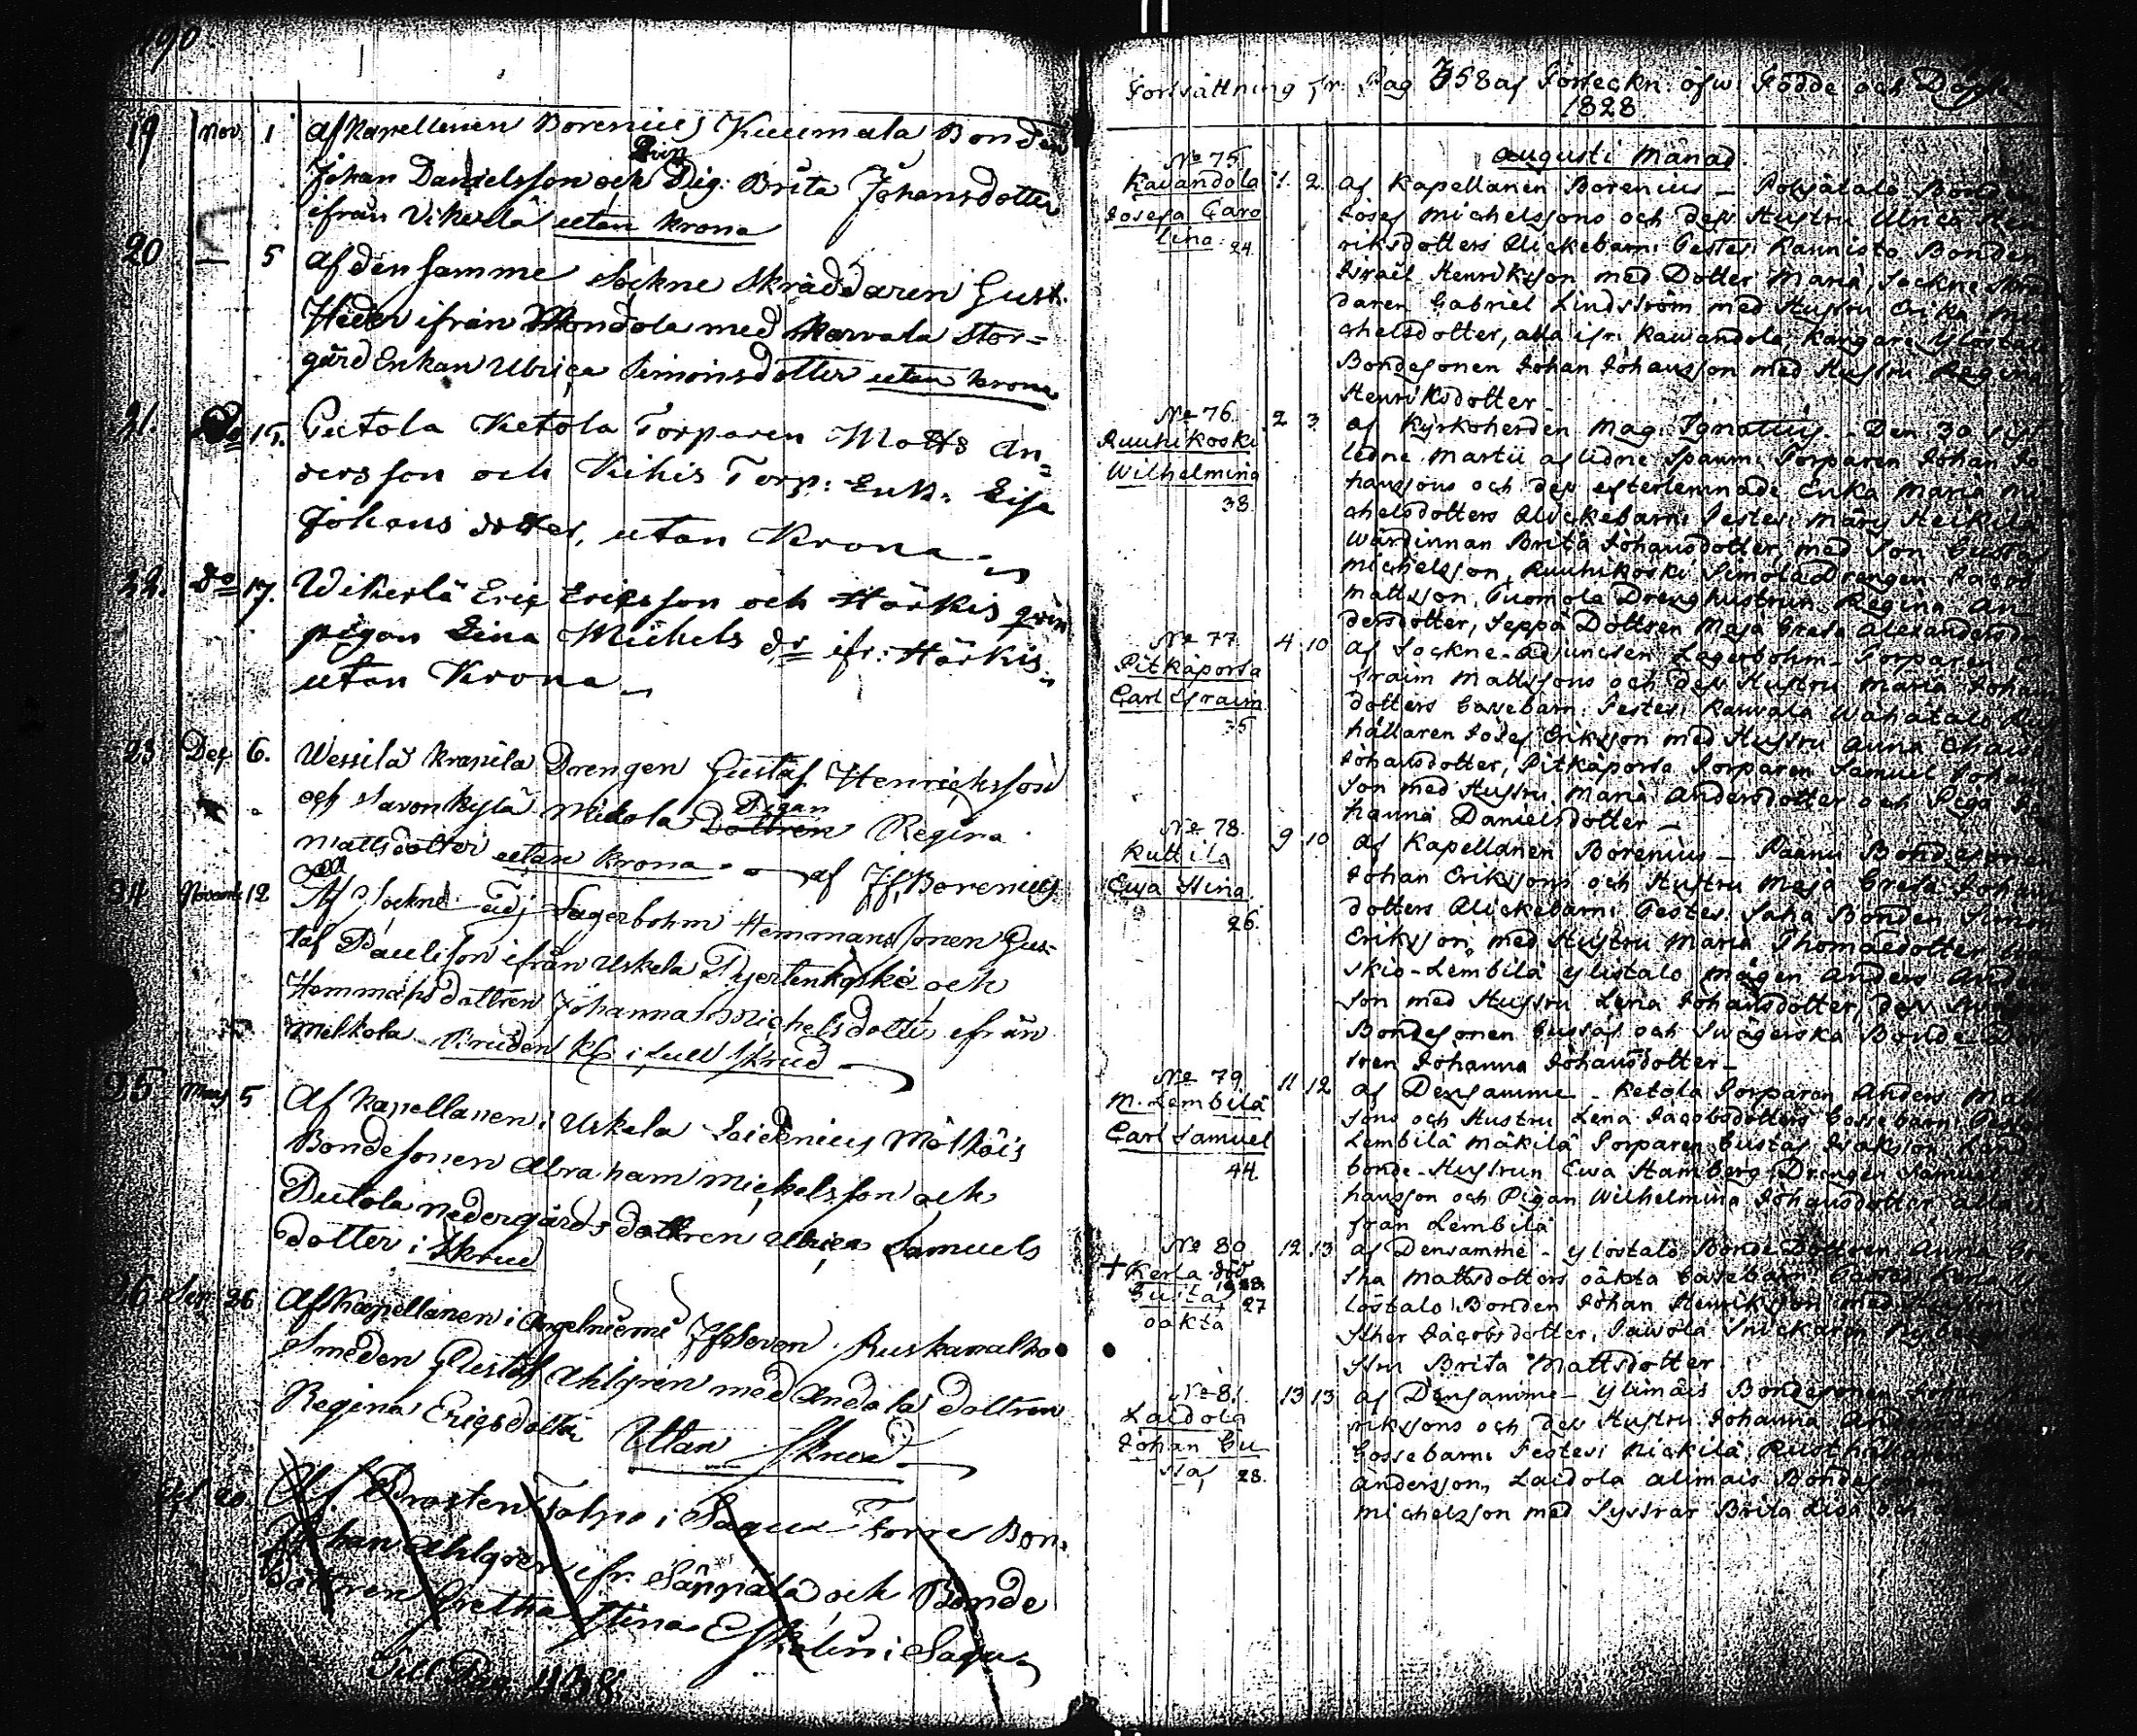 190.
19 Nov. 1 af Kapellanen Borenius Kuumala Bonden
Johan Danielsson och Pig: Brita Johansdotter
Qvin
ifrån Vikerlä utan krona
20 — 5 af den samme Sockne Skräddaren Gust.
Heder ifrån Mondola med Karvala Stor=
gård Enkan Ulrica Simonsdotter utan krona
21. Do 15. Pütola Ketola Torparen Matts An=
dersson och Kihis Torp: Enk: Lisa
Johans dotter, utan Krona
22. Do 17. Wikerlä Eric Ericsson och Härkis qvin
pigan Lina Michels dr ifr: Härkis
utan Krona
23 Dec 6. Wessilä Krapila Drengen Gustaf Henricksson
och Savonkylä Mickola Dottren Regina
Pigan
Mattsdotter utan krona — af Jf Borenius
24 Novemb 12 Af Sockne adj Lagerbohm Hemmans Sonen Gus=
taf Paulison ifrån Uskela Pyertenkoski och
Hemmans dottren Johanna Michelsdotter ifrån
Melkola Bruden kl: i full skrud
25 Maij 5 Af Kapellanen i Uskela Laidenius Mölköis
Bondesonen Abraham Michelsson och
Pütola nedergårds dottren Ulrica Samuels
dotter i Skrud
26 Sep. 26 Af Kapellanen i Angelniemi Ruskavalko
Smeden Gustaf Ahlgren med Andola dottren
Regina Ericsdotter Utan Skrud
Oct. 20. Af Prosten Tolpo i Sagu Torre Bon.
Johan Ahlqvist ifr. Säppälä och Bonde
dottren Gretha Stina Eskelin i Sagu
Till Pag. 438.
Fortsättning fr. Pag 358 af Förteckn: öfw: Födde och Döpte
1828.
Augusti Månad
No 75.
Kavandola
Josefa Caro
lina. 24.
1. 2. af Kapellanen Borenius — Pohjatalo Bonden
Josef Michelssons och dess Hustru Ulrica Hen
riksdotters Flickebarn: Testes: Kaunisto Bonden
Israel Henriksson med Dotter Maria, Sockne Skräd
daren Gabriel Lindström med Hustru Erika Mi
chelsdotter, alla ifr. Kawandola; Kargare Ylöstalo
Bondesonen Johan Johansson med Hustru Regina
Henriksdotter
No 76.
Ruuhikoski
Wilhelmina
38.
2 3 af Kyrkoherden Mag: Ignatius. — Den 30 sist
ledne Martii aflidne Spanm: Torparen Johan Jo
hanssons och dess efterlemnade Enka Maria Mi
chelsdotters Flickebarn: Testes: Märy Heikilä
wärdinnan Brita Johansdotter, med Son Gustaf
Michelsson, Ruuhikoski Simola Drengen Jacob
Mattsson, Tuomola Drenghustrun Regina An
dersdotter, Seppä Dottren Maja Greta Alexandersdr
No 77
Pitkäporta
Carl Efraim
35
4 10 af Sockne-Adjuncten Lagerbohm — Torparen E
fraim Mattssons och dess Hustru Maria Johans
dotters Gossebarn: Testes: Karvala Wähätalo Rus
hållaren Josef Eriksson med Hustru Anna
Johansdotter, Pitkäporta Torparen Samuel Johans
son med Hustru Maria Andersdotter och Piga Jo
hanna Danielsdotter —
No 78.
Kuttila
Ewa Stina
26.
9 10 af Kapellanen Borenius — Päärni Bondesonen
Johan Erikssons och Hustru Maja Greta Johans
dotters Flickebarn: Testes: Saha Bonden Simon
Eriksson, med Hustru Maria Thomasdotter
skio-Lembilä Ylistalo Mågen Anders Anders
son med Hustru Lena Johansdotter, dess
Bondesonen Gustaf och Swägerska Bonde Dot
tren Johanna Johansdotter —
No 79
M. Lembilä
Carl Samuel
44.
11 12 af Densamme — Ketola Torparen Anders Mat
sons och Hustru Lena Jacobsdotters Gossebarn: Testes:
Lembilä Mäkilä Torparen Gustaf Isaksson Land
bonde-Hustrun Ewa Stamberg, Drengen Samuel Jo
hansson och Pigan Wilhelmina Johansdotter, alla
från Lembilä
No 80
+ Kerla död
Gusta 1828.
oäkta 27
12 13 af Densamme — Ylöstalo Bonde Dottren Anna Gre
tha Mattsdotters oäkta Gossebarn: Testes: Kerla Y
löstalo Bonden Johan Henriksson med Hustru
Sther Jacobsdotter, Pawola Snickaren
Brita Mattsdotter.
No 81
Laidola
Johan Gu
staf 28.
13 13 af Densamme — Ylimäis Bondesonen Johan
rikssons och dess Hustru Johanna Andersdotters
Gossebarn: Testes: Nickilä Rusthållaren
Andersson, Laidola Alimais Bondesonen
Michelsson med Systrar Brita Lisa och